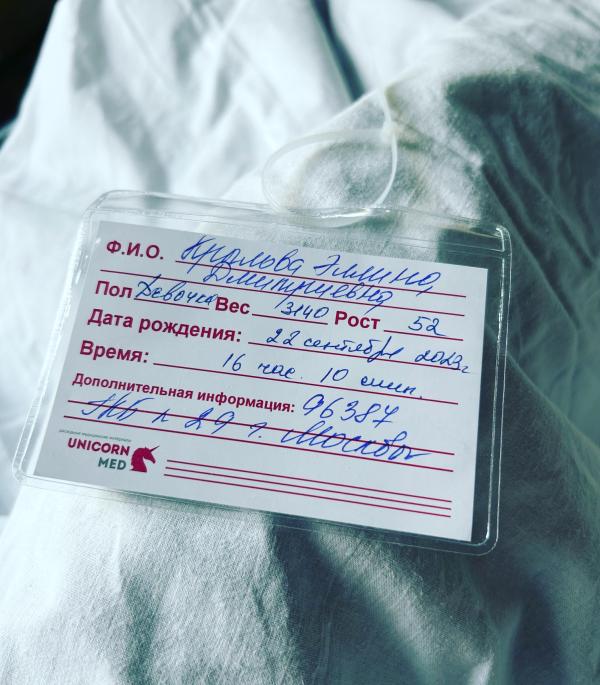 Ф.И.О. Крылова Эллина
Дмитриевна
Пол Девочка Вес 3140 Рост 52
Дата рождения: 22 сентября 2023г
Время: 16 час. 10 мин.
Дополнительная информация: 96387
ГКБ № 29 г. Москвы
UNICORN
MED